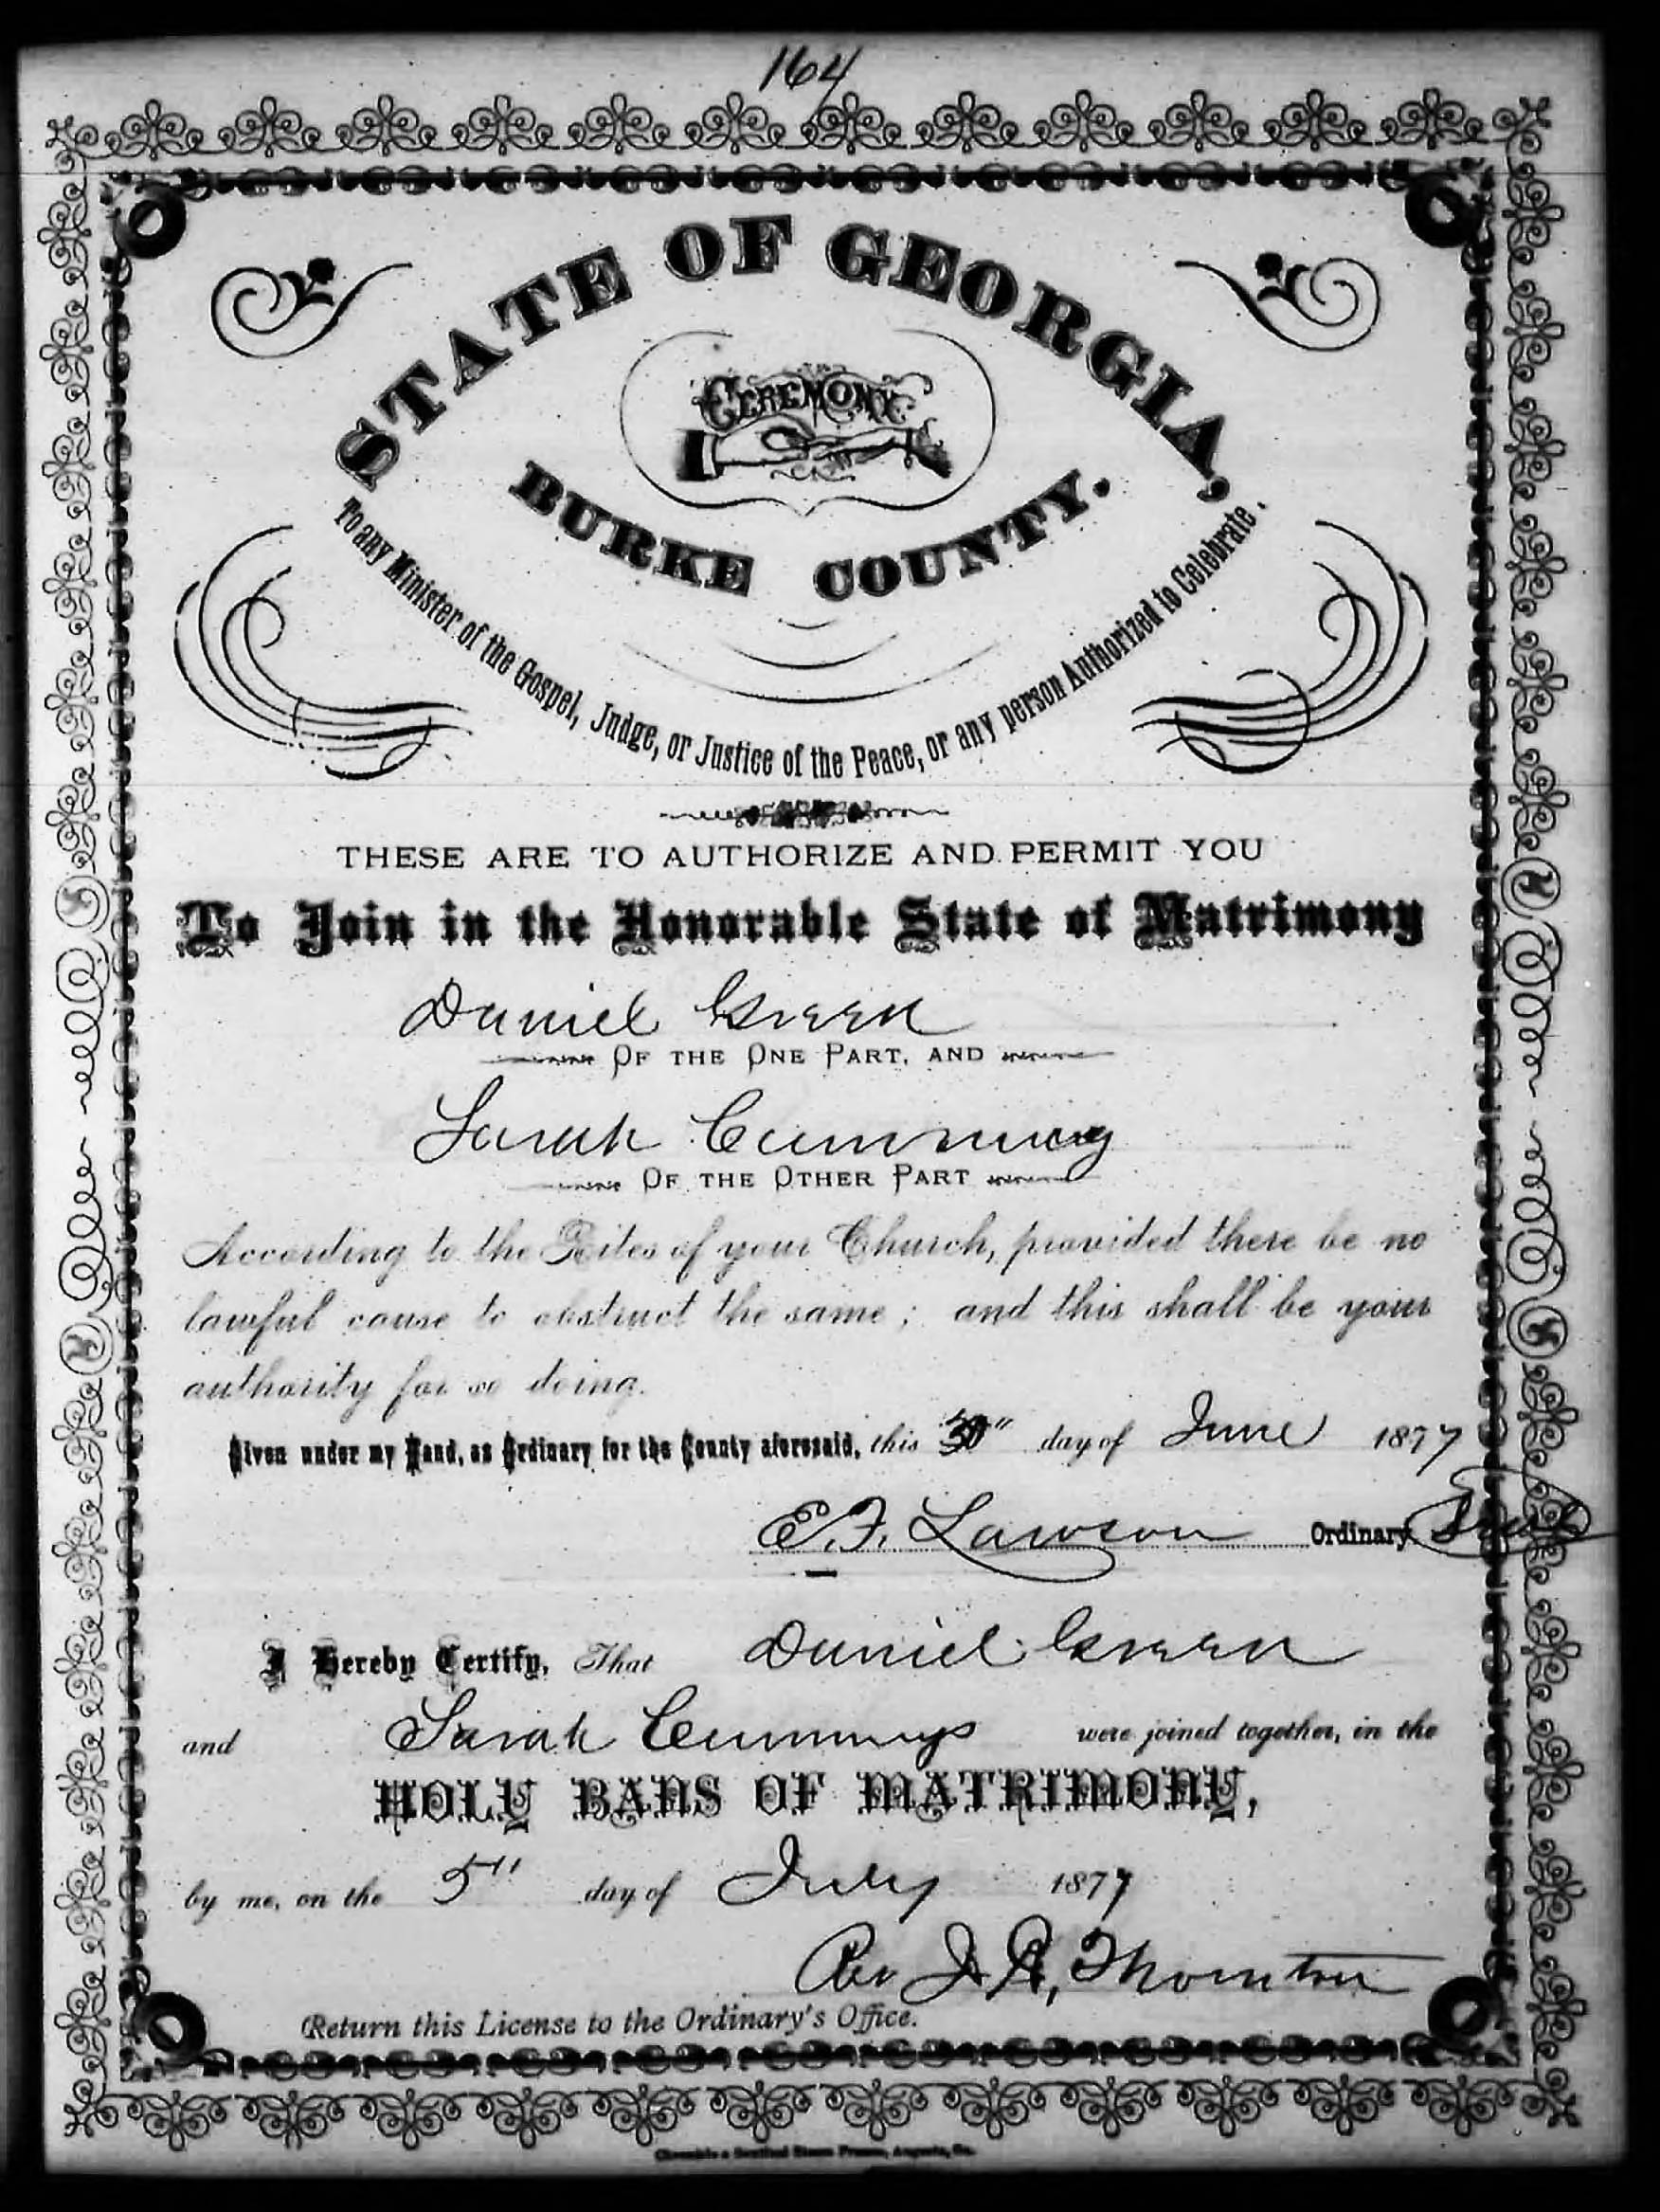 164
STATE OF GEORGIA,
CEREMONY
BURKE COUNTY.
To any Minister of the Gospel, Judge, or Justice of the Peace, or any person Authorized to Celebrate.
THESE ARE TO AUTHORIZE AND PERMIT YOU
To Join in the Honorable State of Matrimony
Daniel Green
OF THE ONE PART, AND
Sarah Cumming
OF THE OTHER PART
According to the Rites of your Church, provided there be no
lawful cause to obstruct the same; and this shall be your
authority for so doing.
Given under my Hand, as Ordinary for the County aforesaid, this 30" day of June 1877
E. F. Lawson Ordinary.
I Hereby Certify, That Daniel Green
and Sarah Cummings were joined together, in the
HOLY BANS OF MATRIMONY,
by me, on the 5" day of July 1877
Rev J. R. Thornton
(Return this License to the Ordinary's Office.
Chronicle & Sentinel Steam Presses, Augusta, Ga.